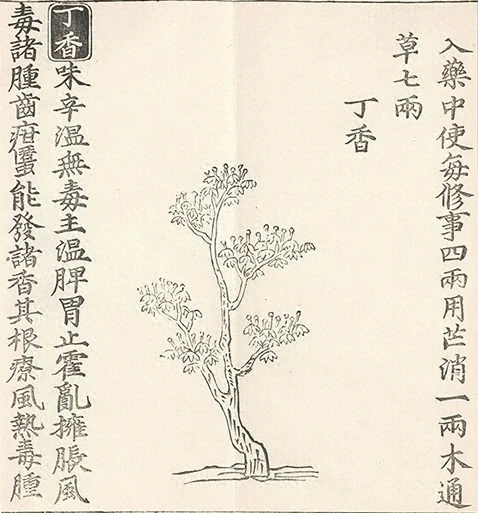 入藥中使每修事四兩用芒消一兩木通
草七兩
丁香
丁香味辛溫無毒主溫脾胃止霍亂擁脹風
毒諸腫齒疳䘌能發諸香其根療風熱毒腫